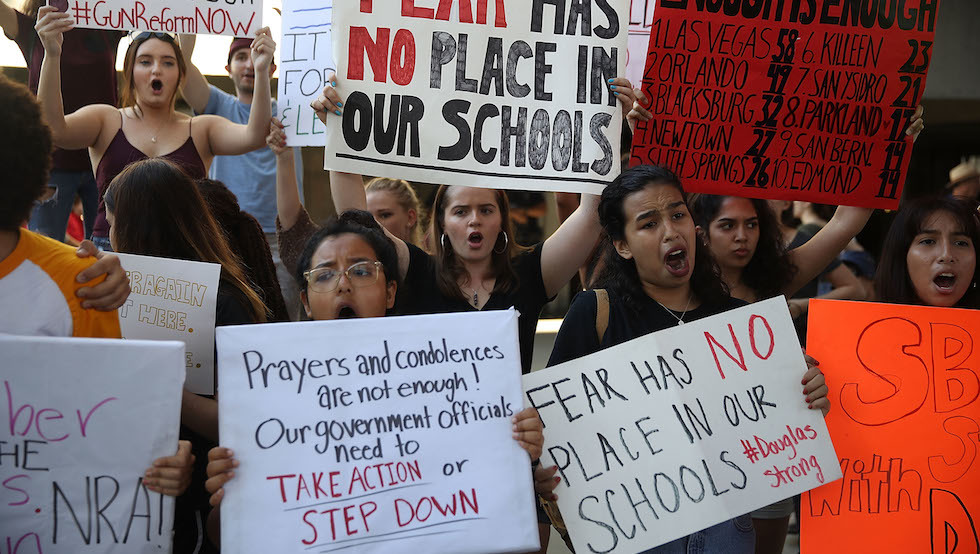 #GunReformNOW
FEAR HAS
NO PLACE IN
OUR SCHOOLS
ENOUGH IS ENOUGH
1. LAS VEGAS 58
2. ORLANDO 49
3. BLACKSBURG 32
4. NEWTOWN 27
5. SUTH SPRINGS 26
6. KILLEEN 23
7. SAN YSIDRO 21
8. PARKLAND 17
9. SAN BERN. 14
10. EDMOND 14
AGAIN
HERE.
THE
NRA!
Prayers and condolences
are not enough!
Our government officials
need to
TAKE ACTION or
STEP DOWN
FEAR HAS NO
PLACE IN OUR
SCHOOLS
#Douglas
strong
SB
With